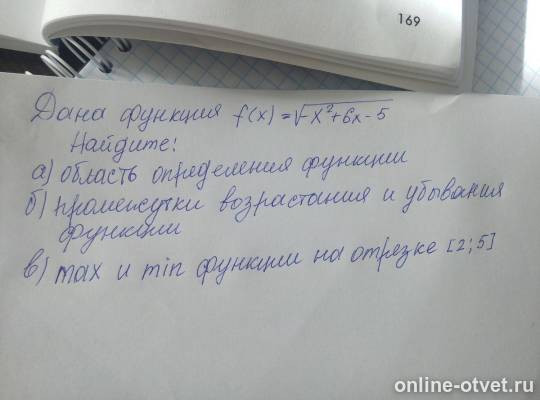 169
Дана функция f(x) = √-x²+6x-5
Найдите:
а) область определения функции
б) промежутки возрастания и убывания
функции
в) max и min функции на отрезке [2;5]
online-otvet.ru